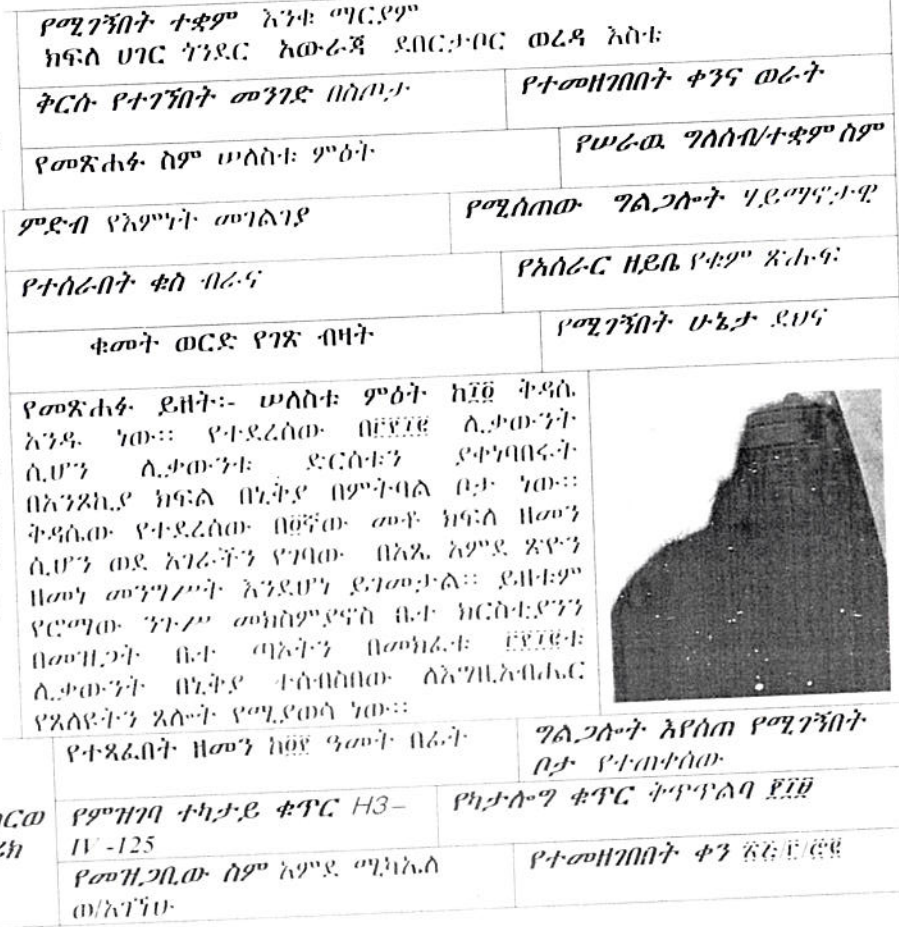 የሚገኝበት ተቋም እንቁ ማርያም
ክፍለ ሀገር ጎንደር አውራጃ ደበርታቦር ወረዳ እስቴ
ቅርሱ የተገኘበት መንገድ በስጦታ የተመዘገበበት ቀንና ወራት
የመጽሐፉ ስም ሠለስቱ ምዕት የሠራዉ ግለሰብ/ተቋም ስም
ምድብ የእምነት መገልገያ የሚሰጠው ግልጋሎት ሃይማኖታዊ
የተሰራበት ቁስ ብራና የአሰራር ዘይቤ የቁም ጽሑፍ
ቁመት ወርድ የገጽ ብዛት የሚገኝበት ሁኔታ ደህና
የመጽሐፉ ይዘት፡- ሠለስቱ ምዕት ከ፲፬ ቅዳሴ
አንዱ ነው። የተደረሰው በ፫፻፲፰ ሊቃውንት
ሲሆን ሊቃውንቱ ድርሰቱን ያቀነባበሩት
በአንጾኪያ ክፍል በኒቅያ በምትባል ቦታ ነው።
ቅዳሴው የተደረሰው በ፬ኛው መቶ ክፍለ ዘመን
ሲሆን ወደ አገራችን የገባው በአጼ አምደ ጽዮን
ዘመነ መንግሥት እንደሆነ ይገመታል። ይዘቱም
የሮማው ንጉሥ መክስምያኖስ ቤተ ክርስቲያንን
በመዝጋት ቤተ ጣኦትን በመክፈቱ ፫፻፲፰ቱ
ሊቃውንት በኒቅያ ተሰብስበው ለእግዚአብሔር
የጸለዩትን ጸሎት የሚያወሳ ነው።
የተጻፈበት ዘመን ዓመት በፊት ግልጋሎት እየሰጠ የሚገኝበት
ቦታ የተጠቀሰው
የምዝገባ ተከታይ ቁጥር H3–
IV -125 የካታሎግ ቁጥር ትጥጥልባ
የመዝጋቢው ስም አምደ ሚካኤለ
ወ/አገኘሁ የተመዘገበበት ቀን